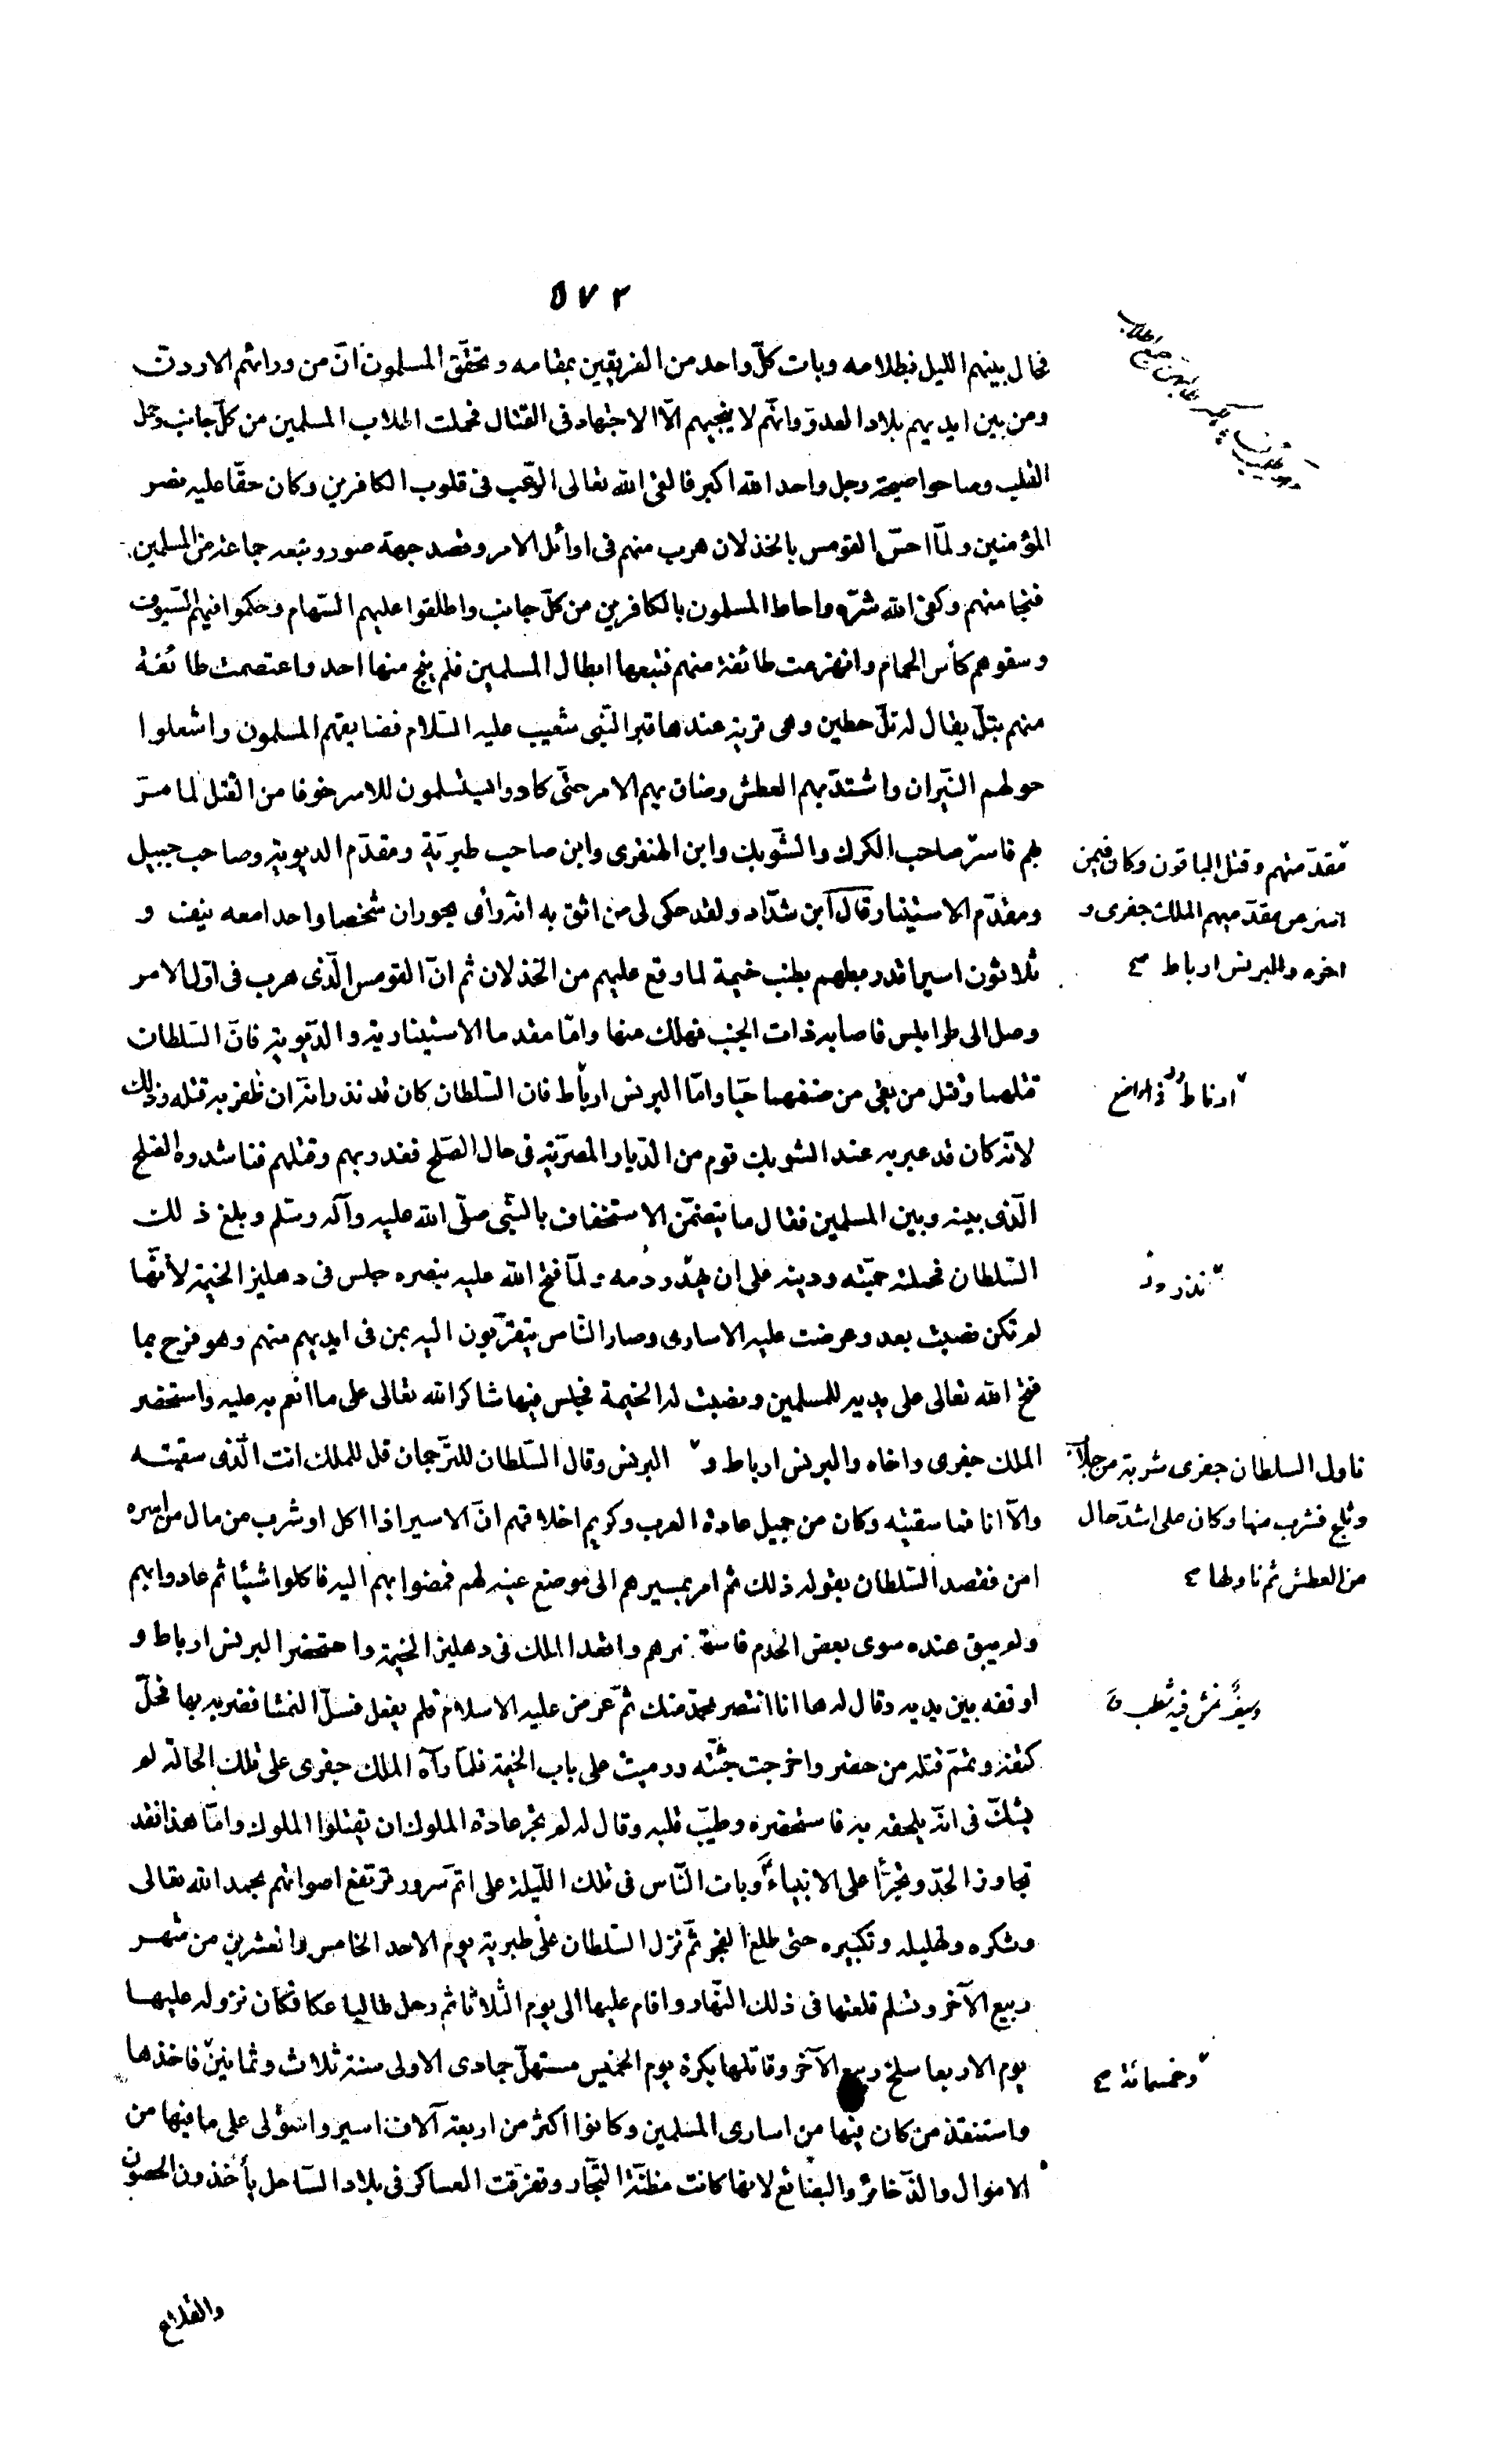 ٥٧٢
فحال بينهم الليل بظلامه وبات كلّ واحد من الفريقين بمقامه وتحقّق المسلمون انّ من ورائهم الاردنّ
ومن بين ايديهم بلاد العدوّ وانّهم لا ينجيهم الّا الاجتهاد فى القتال فحملت اطلاب المسلمين من كلّ جانب وحمل
القلب وصاحوا صيحة رجل واحد الله اكبر فالقى الله تعالى الرّعب فى قلوب الكافرين وكان حقّا عليه نصر
المؤمنين ولمّا احسّ القومس بالخذلان هرب منهم فى اوائل الامر وقصد جهة صور وتبعه جماعة من المسلمين
فنجا منهم وكفى الله شرّه واحاط المسلمون بالكافرين من كلّ جانب واطلقوا عليهم السّهام وحكموا فيهم السّيوف
وسقوهم كأس الحمام وانهزمت طائفة منهم فتبعها ابطال المسلمين فلم ينج منها احد واعتصمت طائفة
منهم بتلّ يقال له تلّ حطين وهى قرية عندها قبر النّبى شعيب عليه السّلام فضايقهم المسلمون واشعلوا
حولهم النّيران واشتدّ بهم العطش وضاق بهم الامر حتّى كادوا يستسلمون للاسر خوفا من القتل لما مرّ
بهم فاسر صاحب الكرك والشّوبك وابن الهنفرى وابن صاحب طبريّة ومقدّم الديوية وصاحب جبيل
مقدّمتهم وقتل الباقون وكان فيمن
اسر من مقدّميهم الملك جفرى و
اخوه والبرنس ارباط
ومقدّم الاستبنار قال ابن شدّاد ولقد حكى لى من اثق به انّه رأى بحوران شخصا واحدا معه نيف و
ثلاثون اسيرا قد ربطهم بطنب خيمة لما وقع عليهم من الخذلان ثم انّ القومس الّذى هرب فى اوّل الامر
وصل الى طرابلس فاصابه ذات الجنب فهلك منها وامّا مقدما الاستبنارية والدّيوية فانّ السّلطان
قتلهما وقتل من بقى من صنفهما حيّا وامّا البرنس ارباط فان السّلطان كان قد نذر انّه ان ظفر به قتله وذلك
ارناط
لانّه كان قد عبر به عند الشوبك قوم من الدّيار المصريّة فى حال الصّلح فغدر بهم وقتلهم فناشدوه الصّلح
الّذى بينه وبين المسلمين فقال ما يتضمّن الاستخفاف بالنّبى صلّى الله عليه وآله وسلّم وبلغ ذلك
السّلطان فحملته حميّته ودينه على ان يهدر دمه ولمّا فتح الله عليه بنصره جلس فى دهليز الخيمة لأنّها
نذر
لم تكن نصبت بعد وعرضت عليه الاسارى وصار النّاس يتقرّبون اليه بمن فى ايديهم منهم وهو فرح بما
فتح الله تعالى على يديه للمسلمين ونصبت له الخيمة فجلس فيها شاكرا لله تعالى على ما انعم به عليه واستحضر
الملك جفرى واخاه والبرنس ارباط و البرنس وقال السّلطان للتّرجمان قل للملك انت الّذى سقيته
ناول السلطان جفرى شربة من جلاب
وثلج فشرب منها وكان على اشدّ حال
من العطش ثم ناولها
والّا انا فما سقيته وكان من جميل عادة العرب وكريم اخلاقهم انّ الاسير اذا اكل او شرب من مال من اسره
امن فقصد السّلطان بقوله ذلك ثم امر بمسيرهم الى موضع عينه لهم فمضوا بهم اليه فاكلوا شيئا ثم عادوا بهم
ولم يبق عنده سوى بعض الخدم فاستحضرهم واقعد الملك فى دهليز الخيمة واحتضر البرنس ارباط و
اوقفه بين يديه وقال له ها انا انتصر لمحمّد منك ثمّ عرض عليه الاسلام فلم يفعل فسلّ النمشا فضربه بها فحلّ
كتفه وتمّم قتله من حضر واخرجت جثّته ورميت على باب الخيمة فلمّا رآه الملك جفرى على تلك الحالة لم
يشكّ فى انّه يلحقه به فاستحضره وطيّب قلبه وقال له لم تجر عادة الملوك ان يقتلوا الملوك وامّا هذا فقد
تجاوز الحدّ وتجرّأ على الانبياء وبات النّاس فى تلك اللّيلة على اتمّ سرور ترتفع اصواتهم بحمد الله تعالى
وشكره وتهليله وتكبيره حتى طلع الفجر ثمّ نزل السّلطان على طبرية يوم الاحد الخامس والعشرين من شهر
ربيع الآخر وتسلم قلعتها فى ذلك النّهار واقام عليها الى يوم الثّلاثا ثم رحل طالبا عكا فكان نزوله عليها
يوم الاربعا سلخ ربيع الآخر وقاتلها بكرة يوم الخميس مستهلّ جمادى الاولى سنة ثلاث وثمانين فاخذها
وخمسمائة
واستنقذ من كان فيها من اسارى المسلمين وكانوا اكثر من اربعة آلاف اسير واستولى على ما فيها من
الاموال والذّخائر والبضائع لانها كانت مظنّة التّجّار وتفرّقت العساكر فى بلاد السّاحل يأخذون الحصون
والقلاع